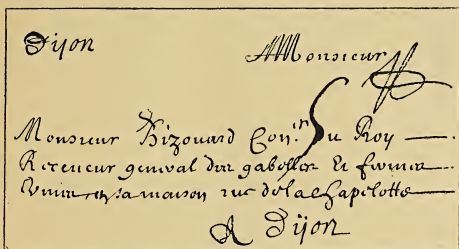 Dijon A Monsieur
Monsieur Bizouard Con.er Du Roy
Receueur general des gabelles & fermes
Vnies en sa maison rue de la Chapelotte
A Dijon